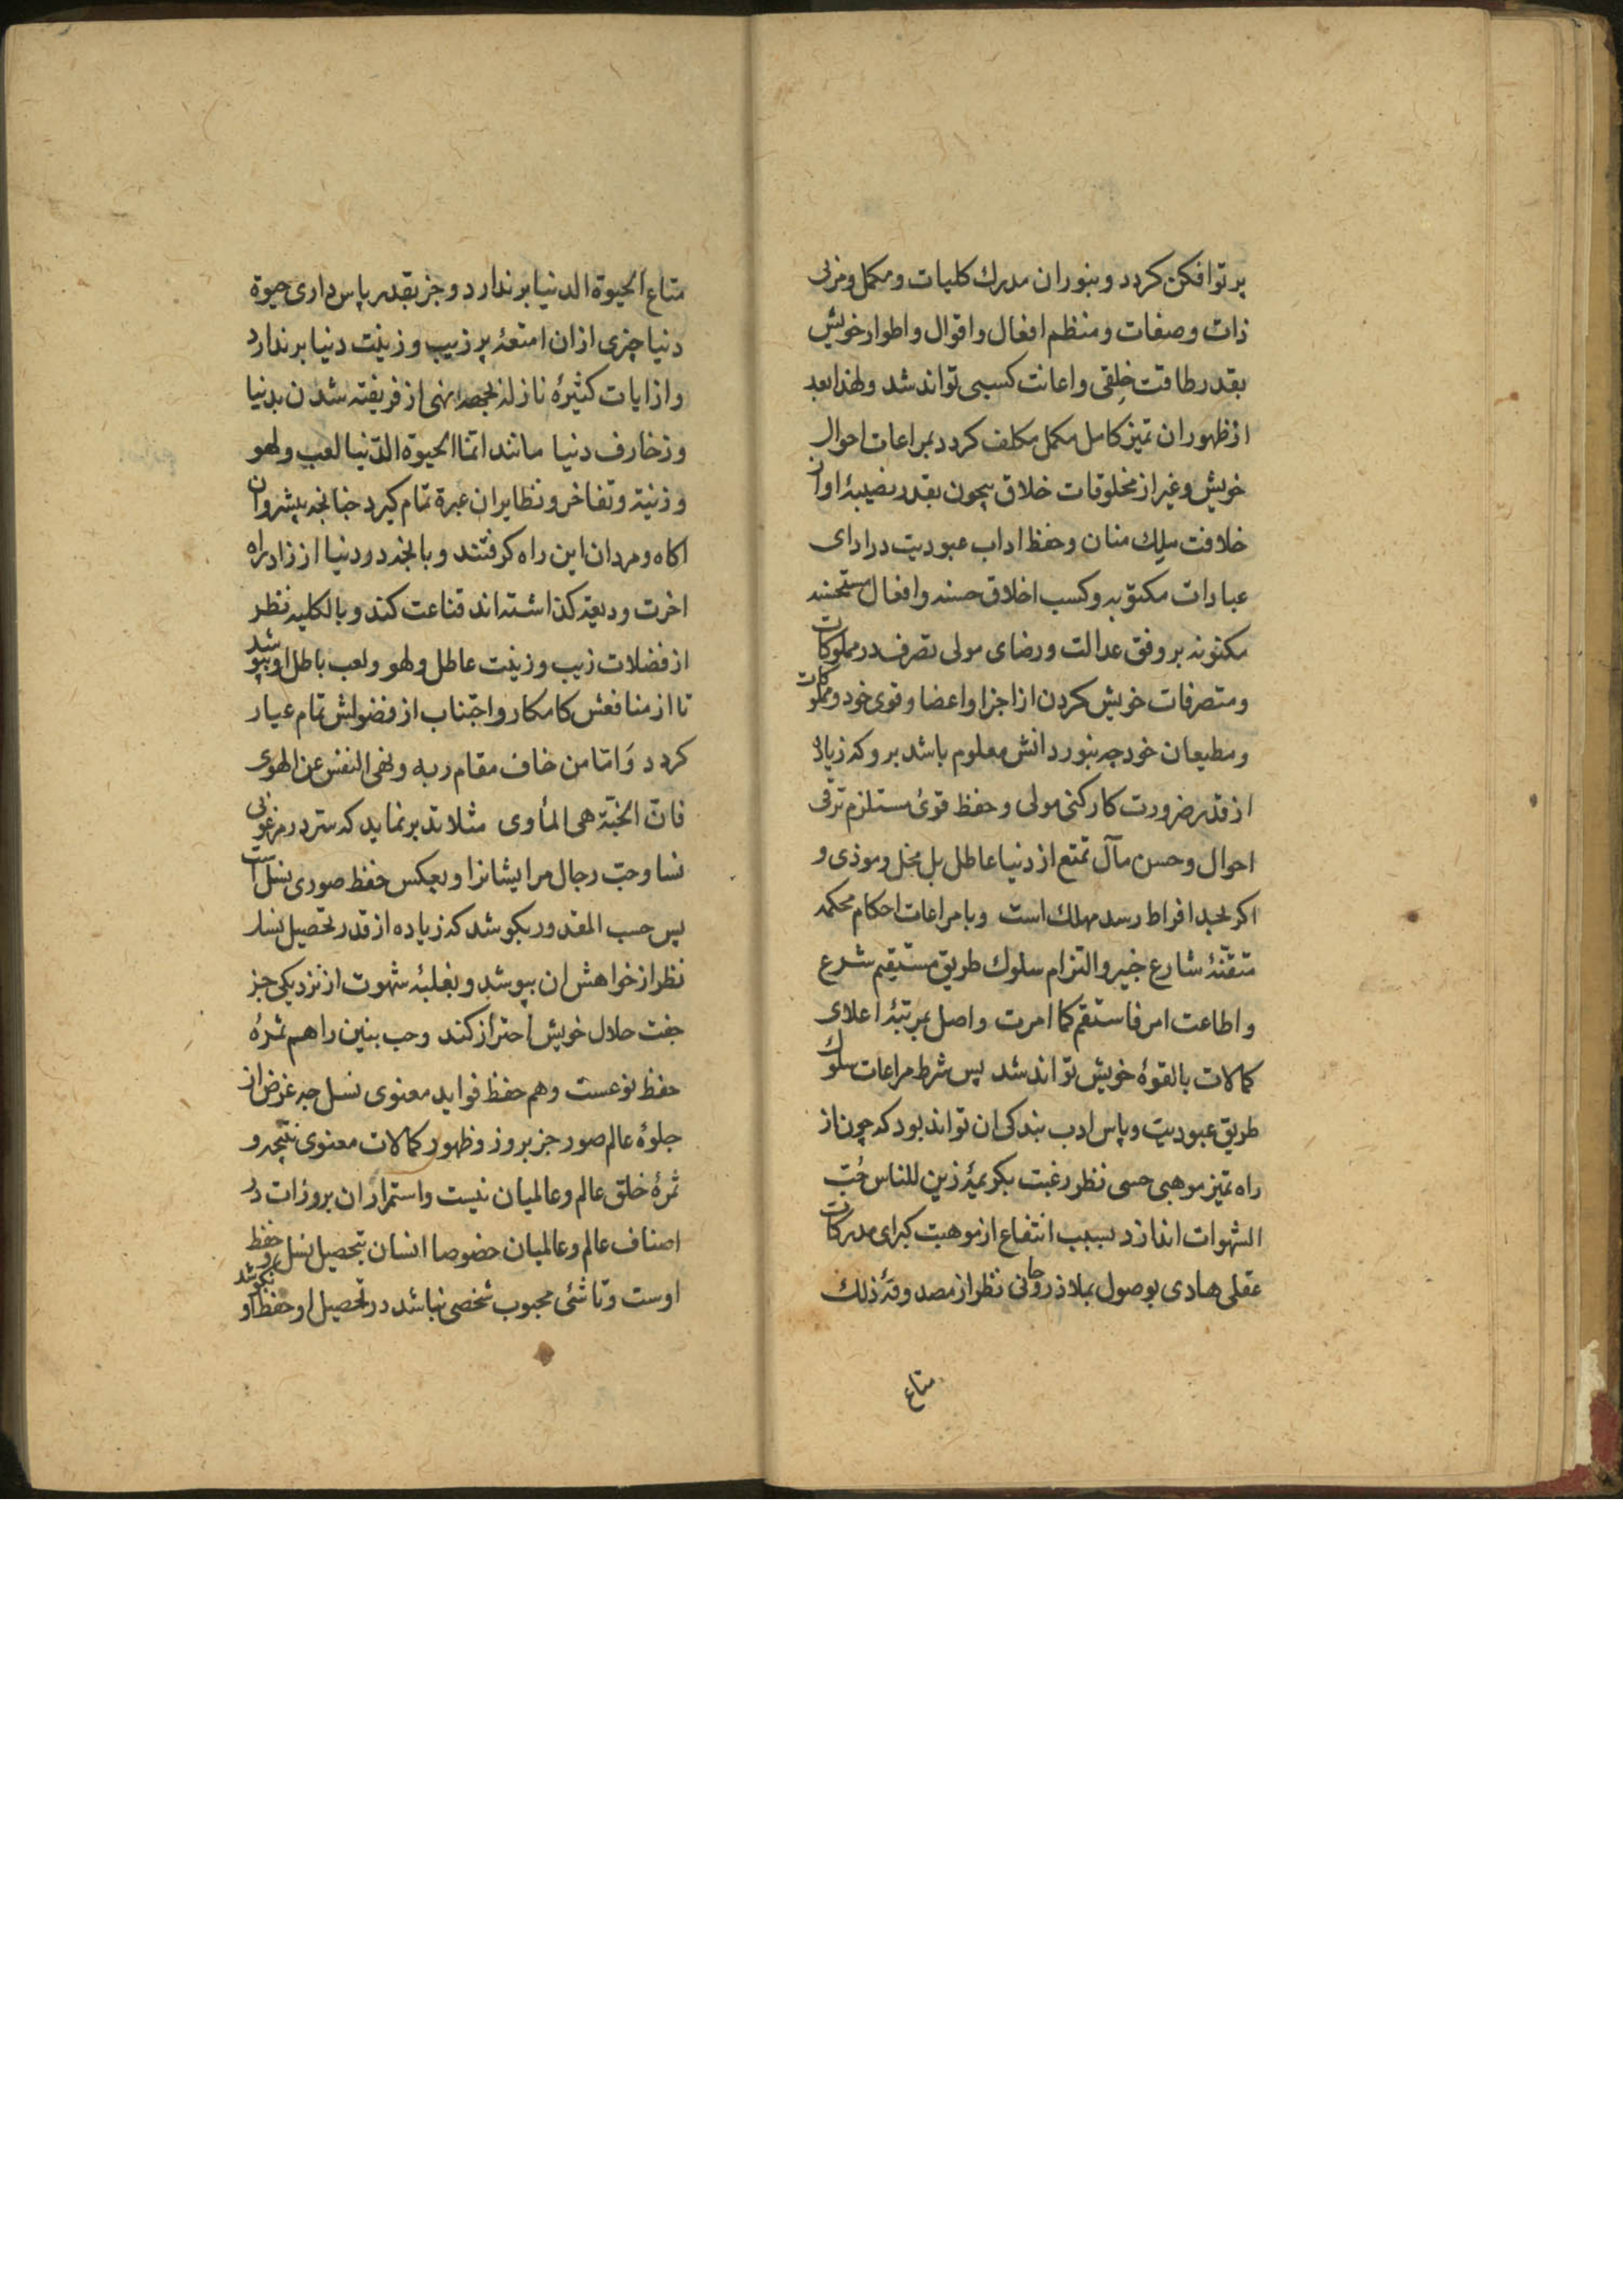 پرتوافکن کردد و بنور ان مدرك کلیات و مکمل و مربی
ذات و صفات و منظم افعال و اقوال و اطوار خویش
بقدر طاقت خلقی و اعانت کسبی تواند شد و لهذا بعد
از ظهور ان تمیز کامل مکمل مکلف کردد بمراعات احوال
خویش و غیر از مخلوقات خلاق بیچون بقدر نصیبهٔ او از
خلافت ملِك منان و حفظ اداب عبودیت در ادای
عبادات مکتوبه و کسب اخلاق حسنه و افعال مستحسنه
مکنونه بر وفق عدالت و رضای مولی تصرف در مملوکات
و متصرفات خویش کردن از اجزا و اعضا و قوی خود و مملوکات
و مطیعان خود چه بنور دانش معلوم باشد بر و که زیاد
از قدر ضرورت کارکنی مولی و حفظ قوئ مستلزم ترقی
احوال و حسن مآل تمتع از دنیا عاطل بل مخل و موذی و
اکر بحد افراط رسد مهلك است و با مراعات احکام محکمه
متقنهٔ شارع خبیر و التزام سلوك طریق مستقیم شرع
و اطاعت امر فاستقم کما امرت واصل بمرتبهٔ اعلای
کمالات بالقوهٔ خویش تواند شد پس شرط مراعات سلوك
طریق عبودیت و پاس ادب بندکی ان تواند بود که چون از
راه تمیز موهبی حسی نظر رغبت بکریمهٔ زین للناس حُبّ
الشهوات اندازد بسبب انتفاع از موهبت کبرای مدرکات
عقلی هادی بوصول بملاذ روحانی نظر از مصدوقهٔ ذلك
متاع
متاع الحیوة الدنیا برندارد و جز بقدر پاس داری حیوة
دنیا چیزی ازان امتعهٔ پر زیب و زینت دنیا برندارد
و از ایات کثیرهٔ نازله نهی از فریفته شدن بدنیا
و زخارف دنیا مانند انّما الحیوة الدّنیا لعب و لهو
و زینة و تفاخر و نظایر ان عبرة تمام کیرد چنانچه پیشروان
اکاه و مردان این راه کرفتند و بانچه در دنیا از زاد راه
اخرت ودیعة کذاشته اند قناعت کند و بالکلیه نظر
از فضلات زیب و زینت عاطل و لهو و لعب باطل او بپوشد
تا از منافعش کامکار و اجتناب از فضولش تمام عیار
کردد وَ امّا من خاف مقام ربه و نهی النفس عن الهوی
فانّ الجنّة هی المأوی مثلا تدبر نماید که سرّ در مرغوبی
نسا و حبّ رجال مر ایشانرا و بعکس حفظ صوری نسل است
پس حسب المقدور بکوشد که زیاده از قدر تحصیل نسل
نظر از خواهش ان بپوشد و بغلبهٔ شهوت از نزدیکی جز
جفت حلال خویش احتراز کند و حب بنین را هم ثمرهٔ
حفظ نوعست و هم حفظ فواید معنوی نسل چه غرض از
جلوهٔ عالم صور جز بروز و ظهور کمالات معنوی نتیجه و
ثمرهٔ خلق عالم و عالمیان نیست و استمرار ان بروزات در
اصناف عالم و عالمیان خصوصا انسان بتحصیل نسل و حفظ
اوست و تا شئی محبوب شخصی نباشد در تحصیل او و حفظ او نکوشد